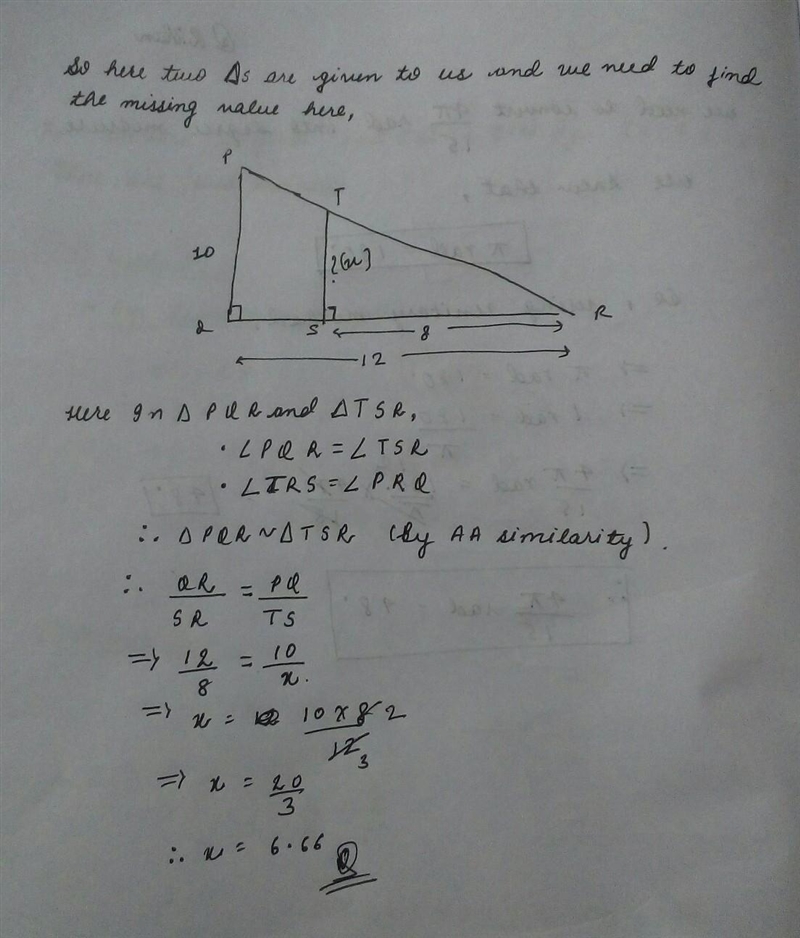 So here two Δs are given to us and we need to find
the missing value here,
P
T
10
?(x)
Q
S
8
R
12
Here In Δ PQR and ΔTSR,
• ∠PQR = ∠TSR
• ∠TRS = ∠PRQ
∴ ΔPQR ~ ΔTSR (by AA similarity).
∴ QR/SR = PQ/TS
⇒ 12/8 = 10/x.
⇒ x = 10 x 8 2/12 3
⇒ x = 20/3
∴ x = 6.66